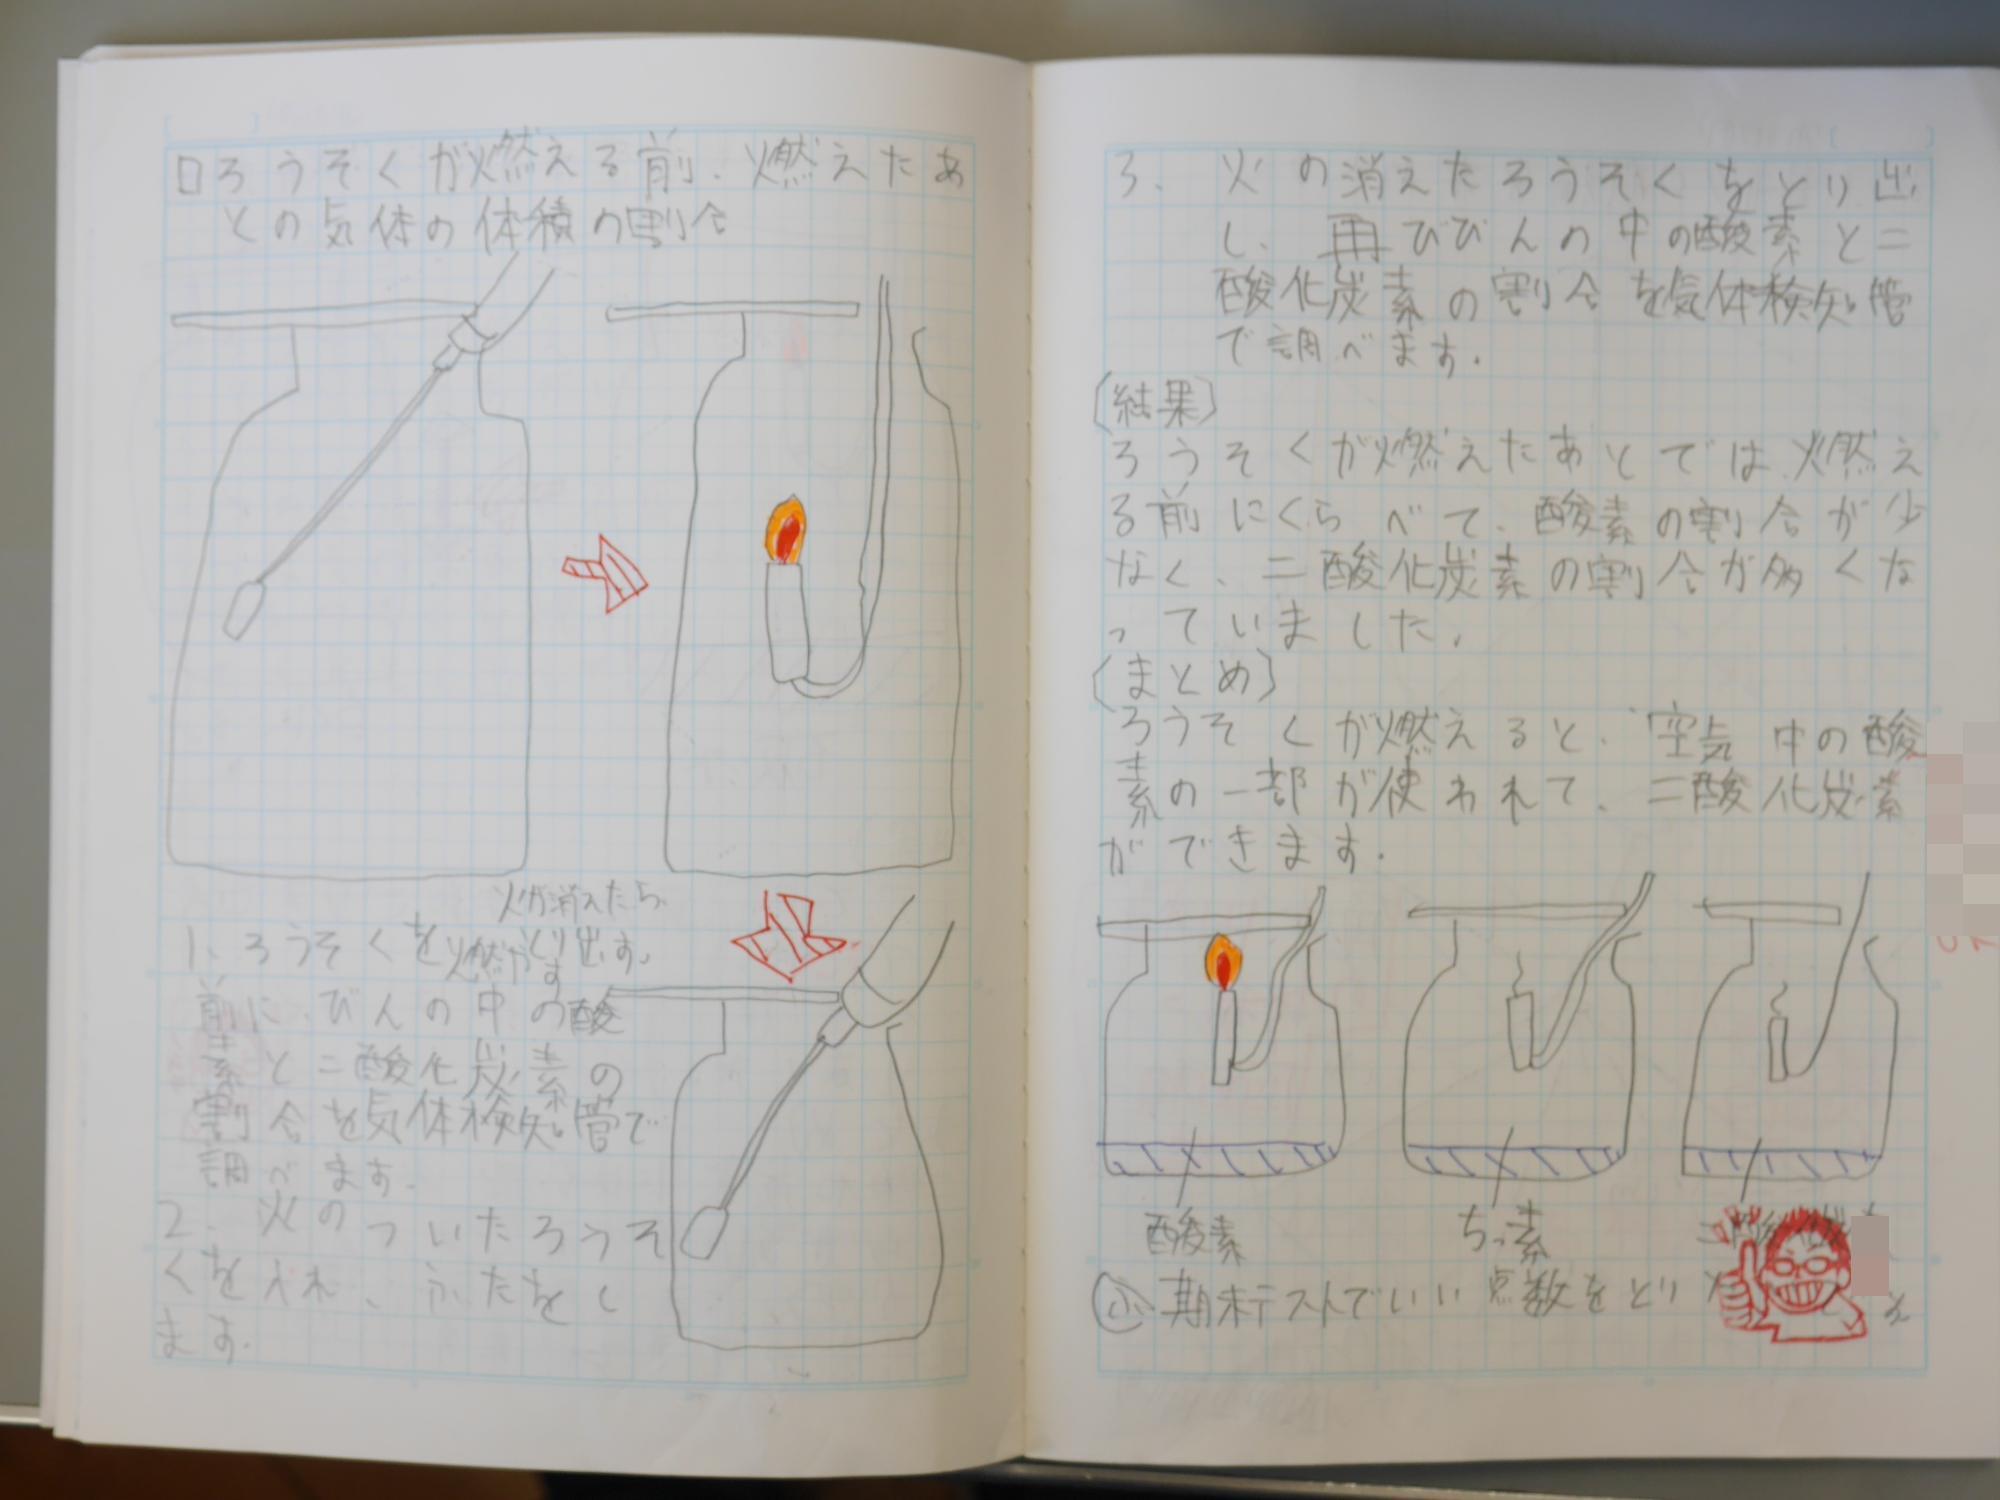 ろうそくが燃える前、燃えたあ
との気体の体積の割合
火が消えたら
とり出す。
1、ろうそくを燃やす
前に、びんの中の酸
素と二酸化炭素の
割合を気体検知管で
調べます。
2、火のついたろうそ
くを入れ、ふたをし
ます。
3、火の消えたろうそくをとり出
し、再びびんの中の酸素と二
酸化炭素の割合を気体検知管
で調べます。
〔結果〕
ろうそくが燃えたあとでは、燃え
る前にくらべて、酸素の割合が少
なく、二酸化炭素の割合が多くな
っていました。
〔まとめ〕
ろうそくが燃えると、空気中の酸
素の一部が使われて、二酸化炭素
ができます。
酸素
ちっ素
期末テストでいい点数をとり